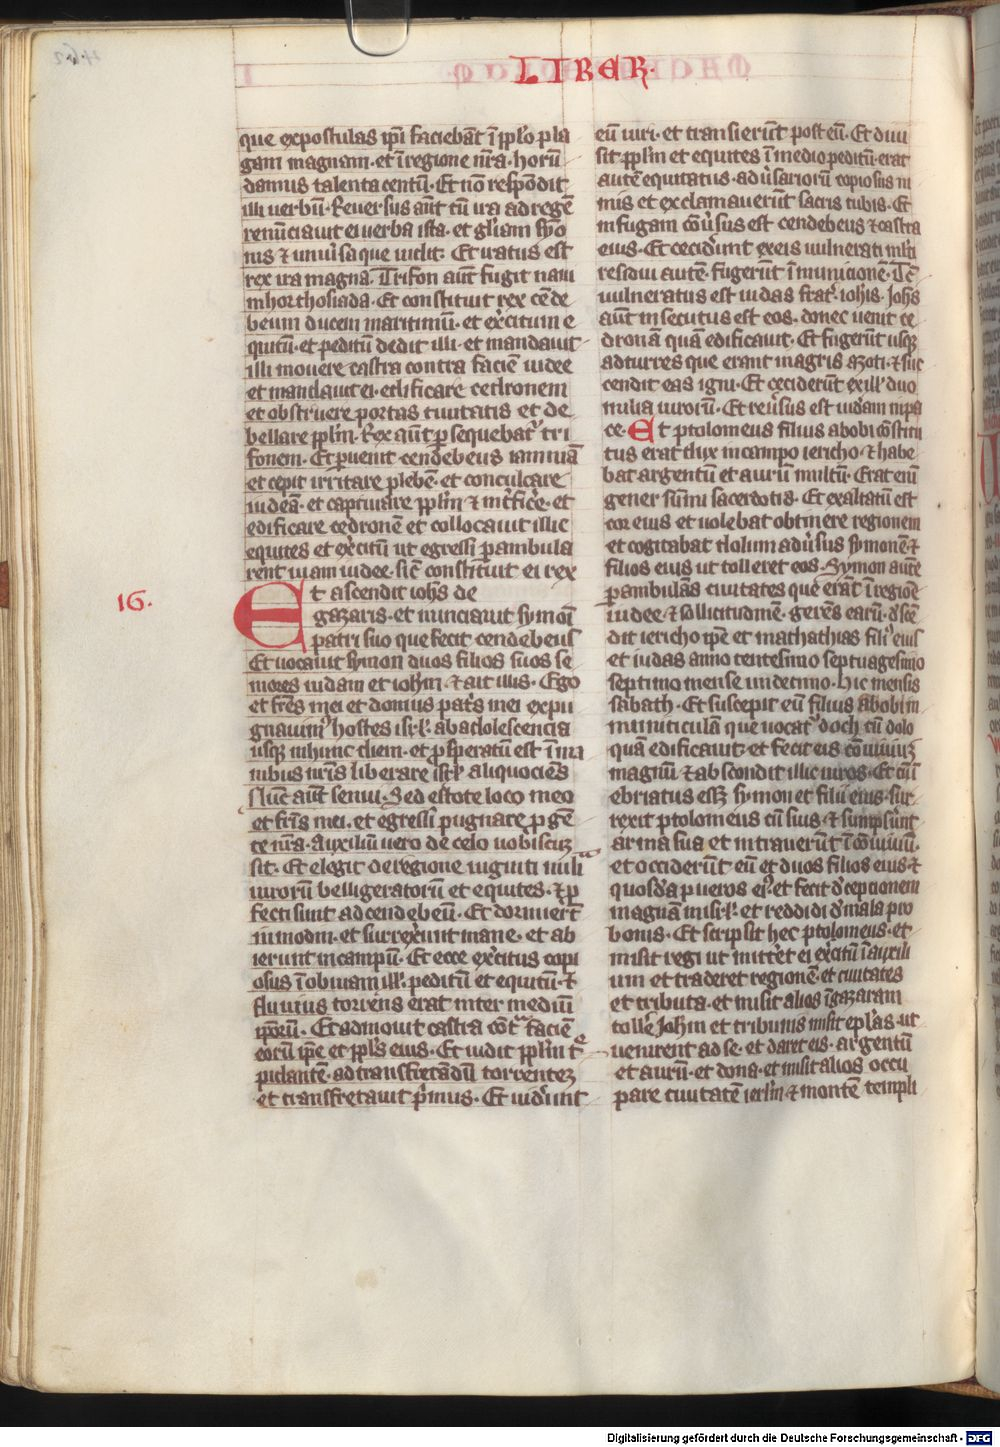 LIBER.
que expostulas ip̄i faciebāt ī pp̄lo pla
gam magnam· et ī regione nr̄a· horū
damus talenta centū· Et nō respondit
illi uerbū· Reuersus aūt cū ira ad regē
renūciauit ei uerba ista· et gl̄iam symo
nis ⁊ uniūsa que uidit· Et iratus est
rex ira magna· Trifon aūt fugit naui
in horthosiada· Et constituit rex cēde
beum ducem maritimū· et exc̄itum e
quitū· et peditū dedit illi· et mandauit
illi mouere castra contra faciē iudee
et mandauit ei· edificare cedronem
et obstruere portas ciuitatis et de
bellare pp̄lm̄· Rex aūt ꝑsequebat̄ tri
fonem· Et ꝑuenit cendebeus iamniā
et cepit irritare plebē· et conculcare
iudeā· et captiuare pp̄lm̄ ⁊ int̄fic̄e· et
edificare cedronē et collocauit illic
equites et exc̄itū ut egressi ꝑambula
rent uiam iudee· sic̄ constituit ei rex
16.
Et ascendit ioh̄s de
gazaris· et nunciauit symōi
patri suo que fecit cendebeus
Et uocauit symon duos filios suos se
niores iudam et ioh̄m· ⁊ ait illis· Ego
et fr̄es mei et domus pat̄s mei expu
gnauim⁹ hostes isr̄l· ab adolescencia
usqꝫ in hunc diem· et ꝓsperatū est ī ma
nibus nr̄is liberare isr̄l aliquociēs
Nunc aūt senui· Sed estote loco meo
et fr̄is mei· et egressi pugnate ꝓ gē
te nr̄a· auxiliū uero de celo uobiscuꝫ
sit· Et elegit de regione uiginti mili
uirorū belligeratorū et equites· ⁊ ꝓ
fecti sunt ad cendebeū· Et dormierūt
in modin· et surrexerunt mane· et ab
ierunt in campū· Et ecce exc̄itus copi
osus ī obuiam ill̄· peditū et equitū· ⁊
fluuius torrens erat inter mediū
ip̄orū· Et admouit castra cōt̄ faciē
eorū ip̄e et pp̄ls eius· Et uidit pp̄lm̄ t̄
pidantē· ad transfretādū torrenteꝫ
et transfretauit p̄mus· Et uid̄unt
eū uiri· et transierūt post eū· Et diui
sit pp̄lm̄ et equites ī medio peditū· erat
autē equitatus· adūsariorū copiosus ni
mis et exclamauerūt sacris tubis· Et
in fugam cōūsus est cendebeus ⁊ castra
eius· Et cecid̄unt ex eis uulnerati ml̄ti
residui autē fugerūt ī municionē· Tc̄
uulneratus est iudas frat̄ ioh̄is· Ioh̄s
aūt insecutus est eos· donec uenit ce
dronā quā edificauit· Et fugerūt usqꝫ
ad turres que erant in agris azoti· ⁊ suc
cendit eas igni· Et ceciderūt ex ill̄ duo
milia uirorū· Et reūsus est iudam in pa
ce· Et ptolomeus filius abobi cōstitu
tus erat dux in campo iericho· ⁊ habe
bat argentū et aurū multū· Erat enī
gener sūmi sacerdotis· Et exaltatū est
cor eius et uolebat obtinere regionem
et cogitabat dolum adūsus symonē ⁊
filios eius ut tolleret eos· Symon autē
ꝑambulās ciuitates que erāt ī regiōe
iudee· ⁊ sollicitudinē· gerēs earū· d̄scē
dit iericho ip̄e et mathathias fili⁹ eius
et iudas anno centesimo septuagesimo
septimo mense undecimo· hic mensis
sabath· Et suscepit eū filius abobi in
municiunculā que uocat̄ doch cū dolo
quā edificauit· et fecit eis cōuiuiuꝫ
magnū ⁊ abscondit illic uiros· Et cū ī
ebriatus ess̄ symon et filii eius· sur
rexit ptolomeus cū suis· ⁊ sumps̄unt
arma sua et intrauerūt ī cōuiuiū·
et occiderūt eū et duos filios eius· ⁊
quosdā pueros ei⁹· et fecit d̄cepcionem
magnā in isr̄l· et reddidi d̄ mala pro
bonis· Et scripsit hec ptolomeus· et
misit regi ut mitt̄et ei exc̄itū ī auxili
um et traderet regionē et ciuitates
et tributa· et misit alios ī gazaram
tolle Ioh̄m et tribunis misit ep̄las· ut
uenirent ad se· et daret eis· argentū
et aurū· et dona· et misit alios occu
pare ciuitatē ierl̄m ⁊ montē templi
Digitalisierung gefördert durch die Deutsche Forschungsgemeinschaft - DFG